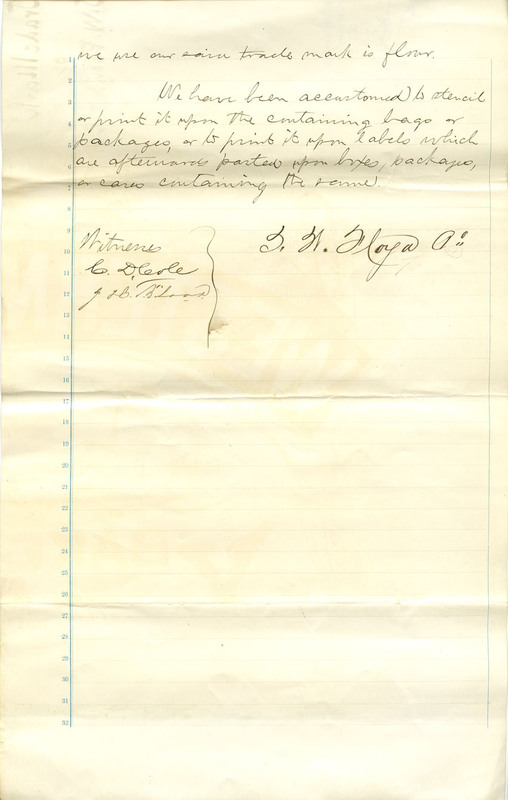 we use our said trade mark is flour.
We have been accustomed to stencil
or print it upon the containing bags or
packages, or to print it upon labels which
are afterwards pasted upon boxes, packages,
or cases containing the same.
Witness
C. D. Cole
T. W. Floyd
1
2
3
4
5
6
7
8
9
10
11
12
13
14
15
16
17
18
19
20
21
22
23
24
25
26
27
28
29
30
31
32